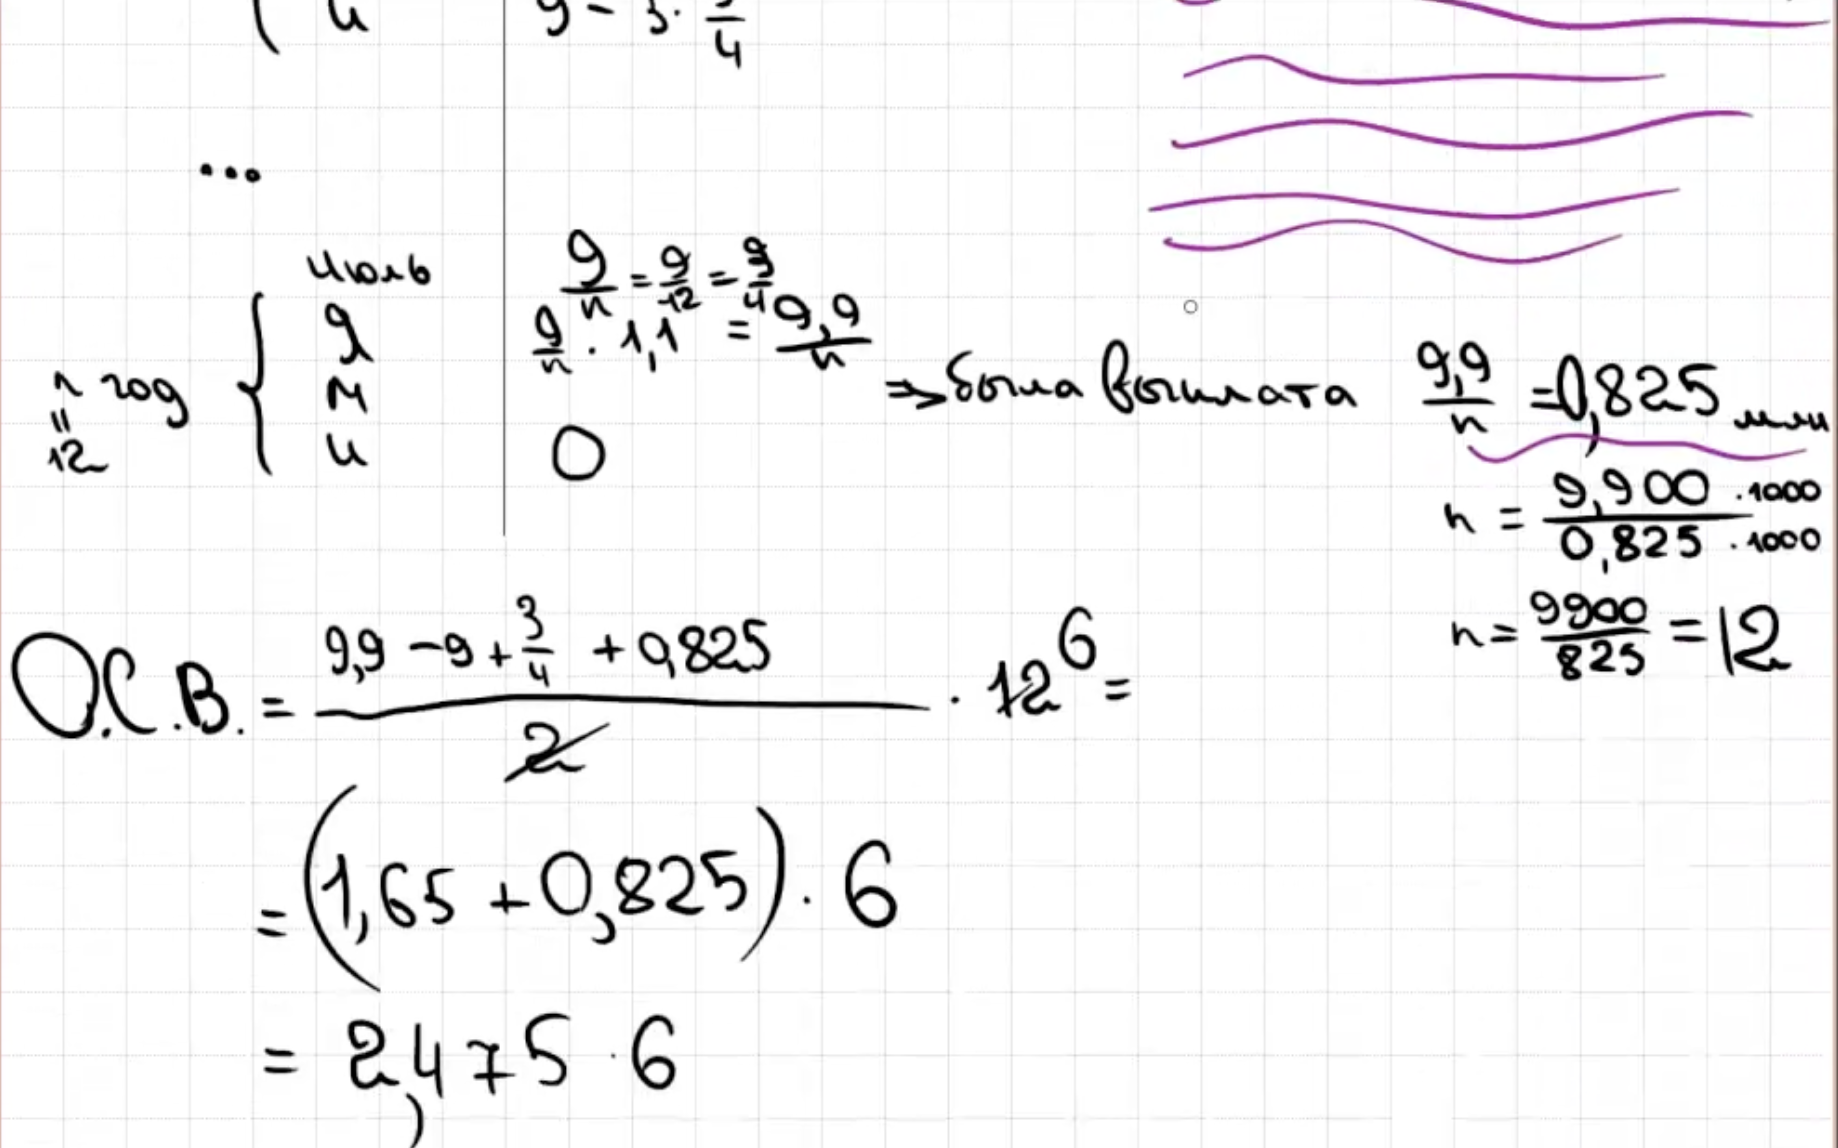 и 9 - 3 · 3/4
...
июль 9/n = 9/12 = 3/4
я 9/n · 1,1 = 9,9/n
n год м ⇒ была выплата 9,9/n = 0,825 млн
"
12 и 0
n = 9,900 · 1000 / 0,825 · 1000
n = 9900/825 = 12
О.С.В. = (9,9 - 9 + 3/4 + 0,825)/2 · 12 6 =
= (1,65 + 0,825) · 6
= 2,475 · 6